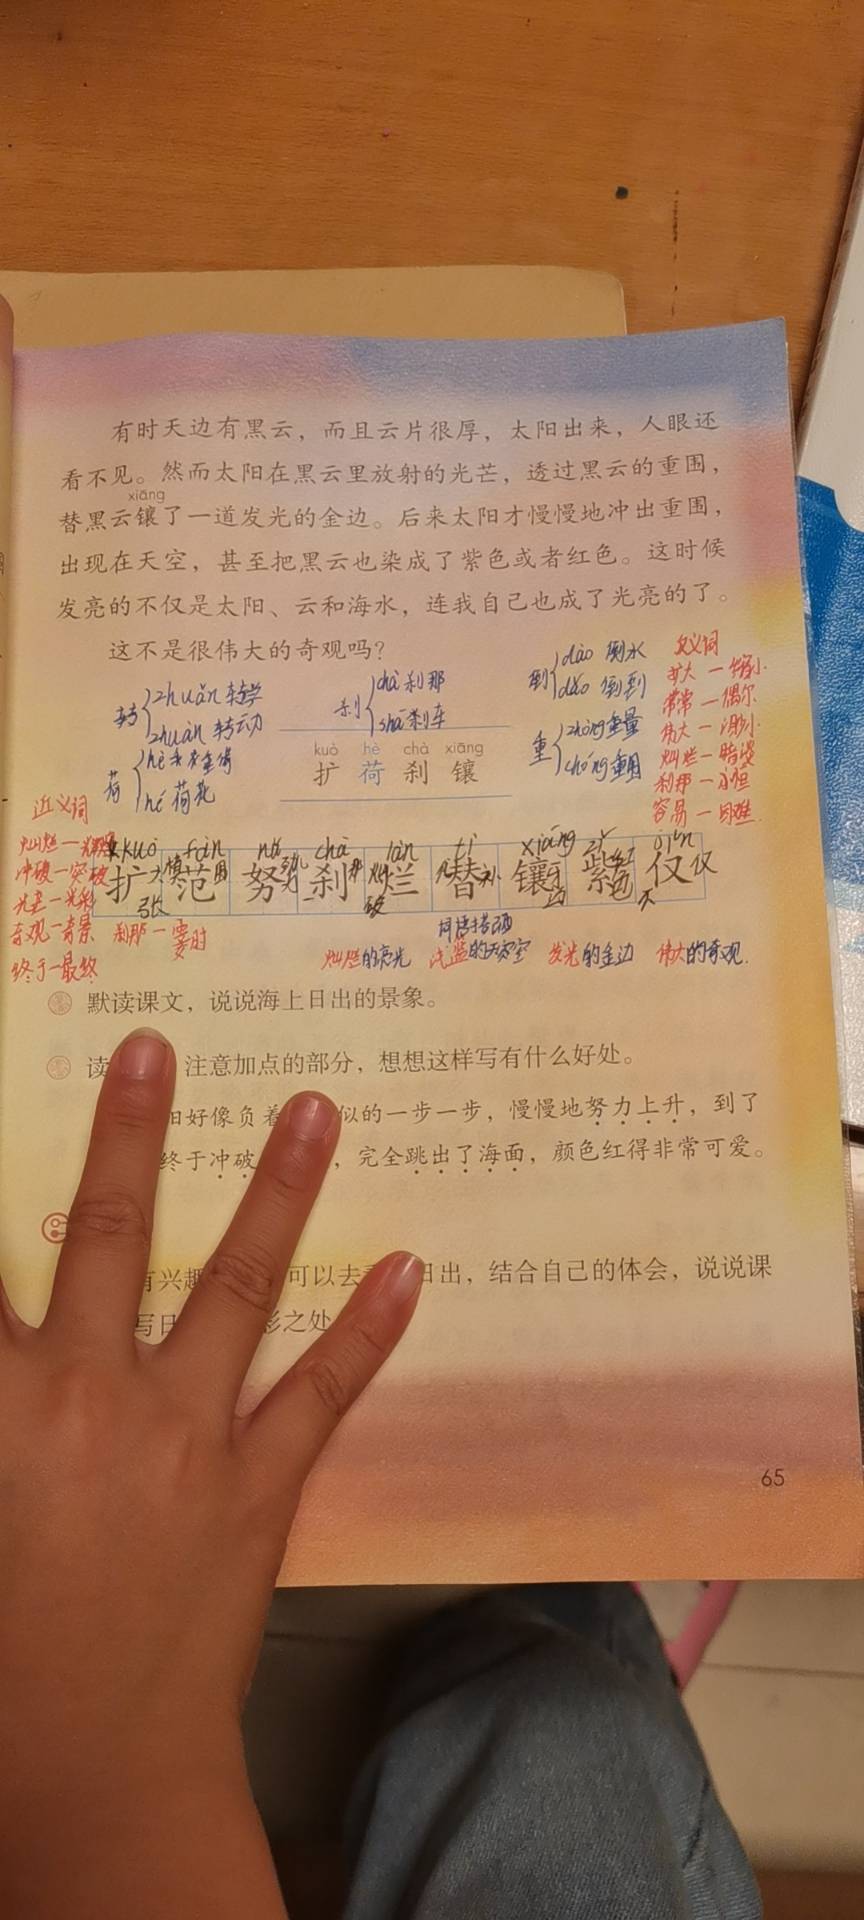 有时天边有黑云，而且云片很厚，太阳出来，人眼还
看不见。然而太阳在黑云里放射的光芒，透过黑云的重围，
xiāng
替黑云镶了一道发光的金边。后来太阳才慢慢地冲出重围，
出现在天空，甚至把黑云也染成了紫色或者红色。这时候
发亮的不仅是太阳、云和海水，连我自己也成了光亮的了。
这不是很伟大的奇观吗？
转 zhuǎn 转学
zhuàn 转动
荷 hè
hé 荷花
刹 chà 刹那
shā 刹车
倒 dào 倒水
dǎo 倒到
重 zhòng 重量
chóng 重围
反义词
扩大—缩小
常常—偶尔
伟大—渺小
灿烂—暗淡
刹那—永恒
容易—困难
kuò hè chà xiāng
扩 荷 刹 镶
近义词
灿烂—光辉
冲破—突破
光芒—光彩
奇观—奇景
终于—最终
刹那—霎时
kuò fàn nǔ chà làn tì xiāng zǐ jǐn
扩 范 努 刹 烂 替 镶 紫 仅
词语搭配
灿烂的亮光 浅蓝的天空 发光的金边 伟大的奇观.
默读课文，说说海上日出的景象。
读 注意加点的部分，想想这样写有什么好处。
阳好像负着 似的一步一步，慢慢地努力上升，到了
终于冲破 ，完全跳出了海面，颜色红得非常可爱。
有兴趣 可以去 日出，结合自己的体会，说说课
写日 之处
65